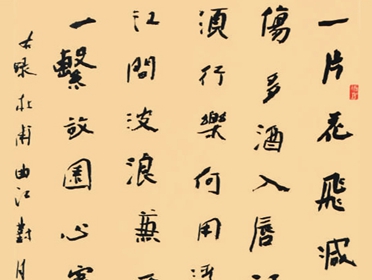 一片花飛減
傷多酒入唇
須行樂何用
江間波浪兼
一繫故園心
杜甫曲江對